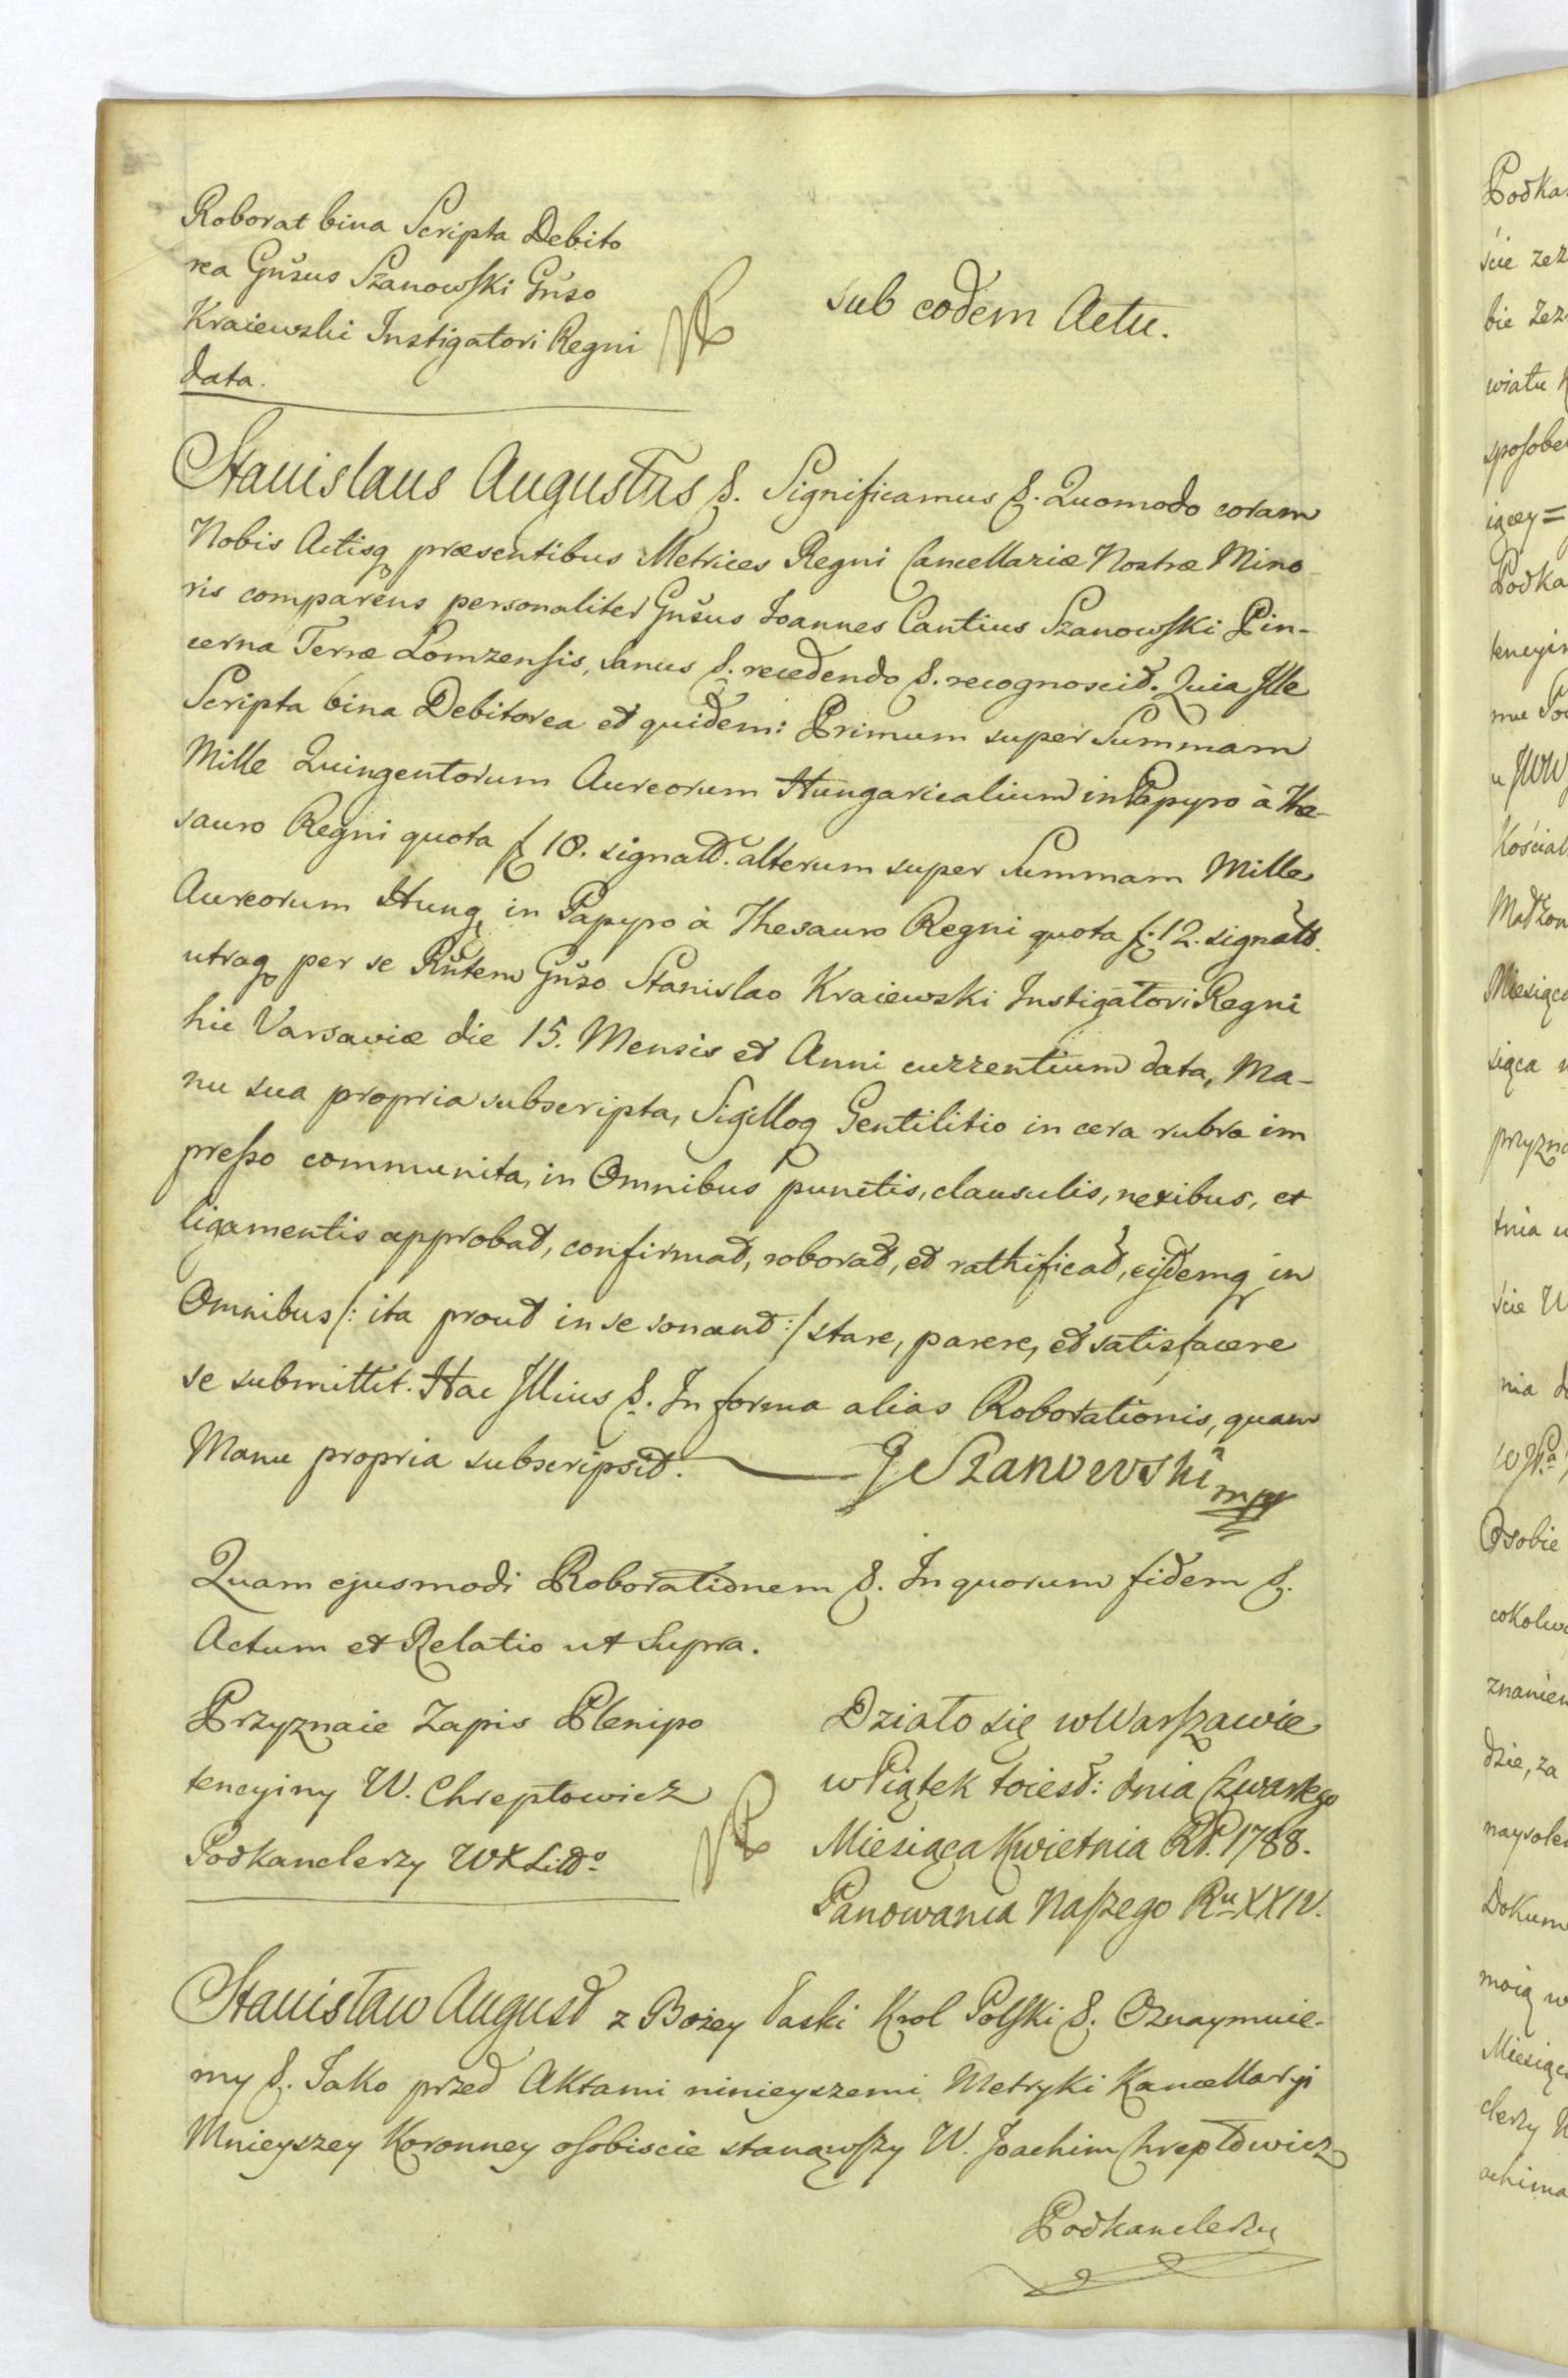 Roborat bina Scripta Debito
rea Gnsus Szanowski Gnso
Kraiewski Instigatori Regni
data.
sub eodem Actu.
Stanislaus Augustus &. Significamus &. Quomodo coram
Nobis Actisq præsentibus Metrices Regni Cancellariæ Nostræ Mino
ris comparens personaliter Gnsus Joannes Cantius Szanowski Pin-
cerna Terræ Lomzensis, sanus &. recedendo &. recognoscit. Quia Ille
Scripta bina Debitorea et quidem: Primum super Summam
Mille Quingentorum Aureorum Hungaricalium in Papyro à The-
sauro Regni quota f 18. signatt. alterum super Summam Mille
Aureorum Hung in Papyro à Thesauro Regni quota f. 12. signatt.
utraq per se Rntem Gnso Stanislao Kraiewski Instigatori Regni
hic Varsaviæ die 15. Mensis et Anni currentium data, Ma-
nu sua propria subscripta, Sigilloq Gentilitio in cera rubra im
presso communita, in Omnibus punctis, clausulis, nexibus, et
ligamentis approbat, confirmat, roborat, et rathificat, eisdemq in
Omnibus /: ita prout in se sonant :/ stare, parere, et satisfacere
se submittit. Hac Illius &. In forma alias Roborationis, quam
Manu propria subscripsit. J Szanowski mp
Quam ejusmodi Roborationem &. In quorum fidem &.
Actum et Relatio ut Supra.
Przyznaie Zapis Plenipo
tencyiny W. Chreptowicz
Podkanclerzy WX Litto
Działo się w Warszawie
w Piątek toiest: dnia Czwartego
Miesiąca Kwietnia RP. 1788.
Panowania Naszego Ru XXIV.
Stanisław August z Bożey Łaski Krol Polski &. Oznaymuie-
my &. Jako przed Aktami ninieyszemi Metryki Kancellaryi
Mnieyszey Koronney osobiscie stanąwszy W. Joachim Chreptowicz
Podkanclerzy